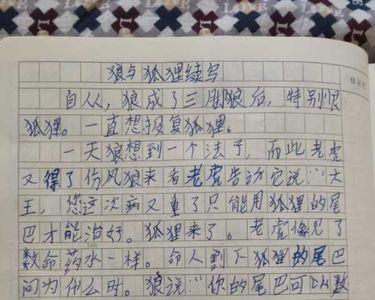 狼与狐狸续写
自从,狼成了三脚狼后,特别恨
狐狸。一直想报复狐狸。
一天狼想到一个法子,而此老虎
又得了伤风狼来看老虎告诉它说:“大
王,您这次病又重了只能用狐狸的尾
巴才能治好。狐狸来了。老虎像见了
救命药水一样。命人割下狐狸的尾巴
问为什么时。狼说:“你的尾巴可以救